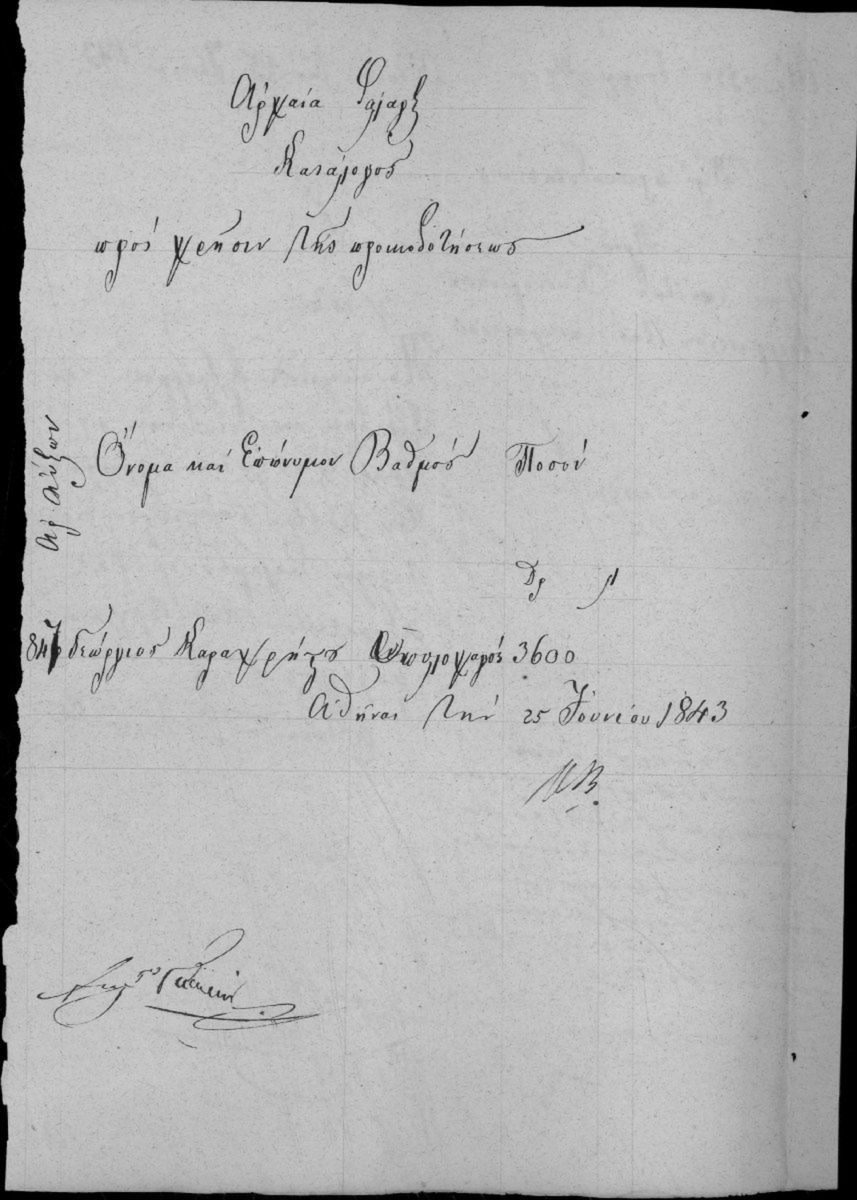 Αρχαία Φάλαγξ
Κατάλογος
πρός χρήσιν της προικοδοτήσεως
Αρ Αύξων
Όνομα και Επώνυμον Βαθμός Ποσόν
Δρ Λ
847 Γεώργιος Καραχρήτζο Υπολοχαγός 3600
Αθήναι την 25 Ιουνίου 1843
Μ.Β.